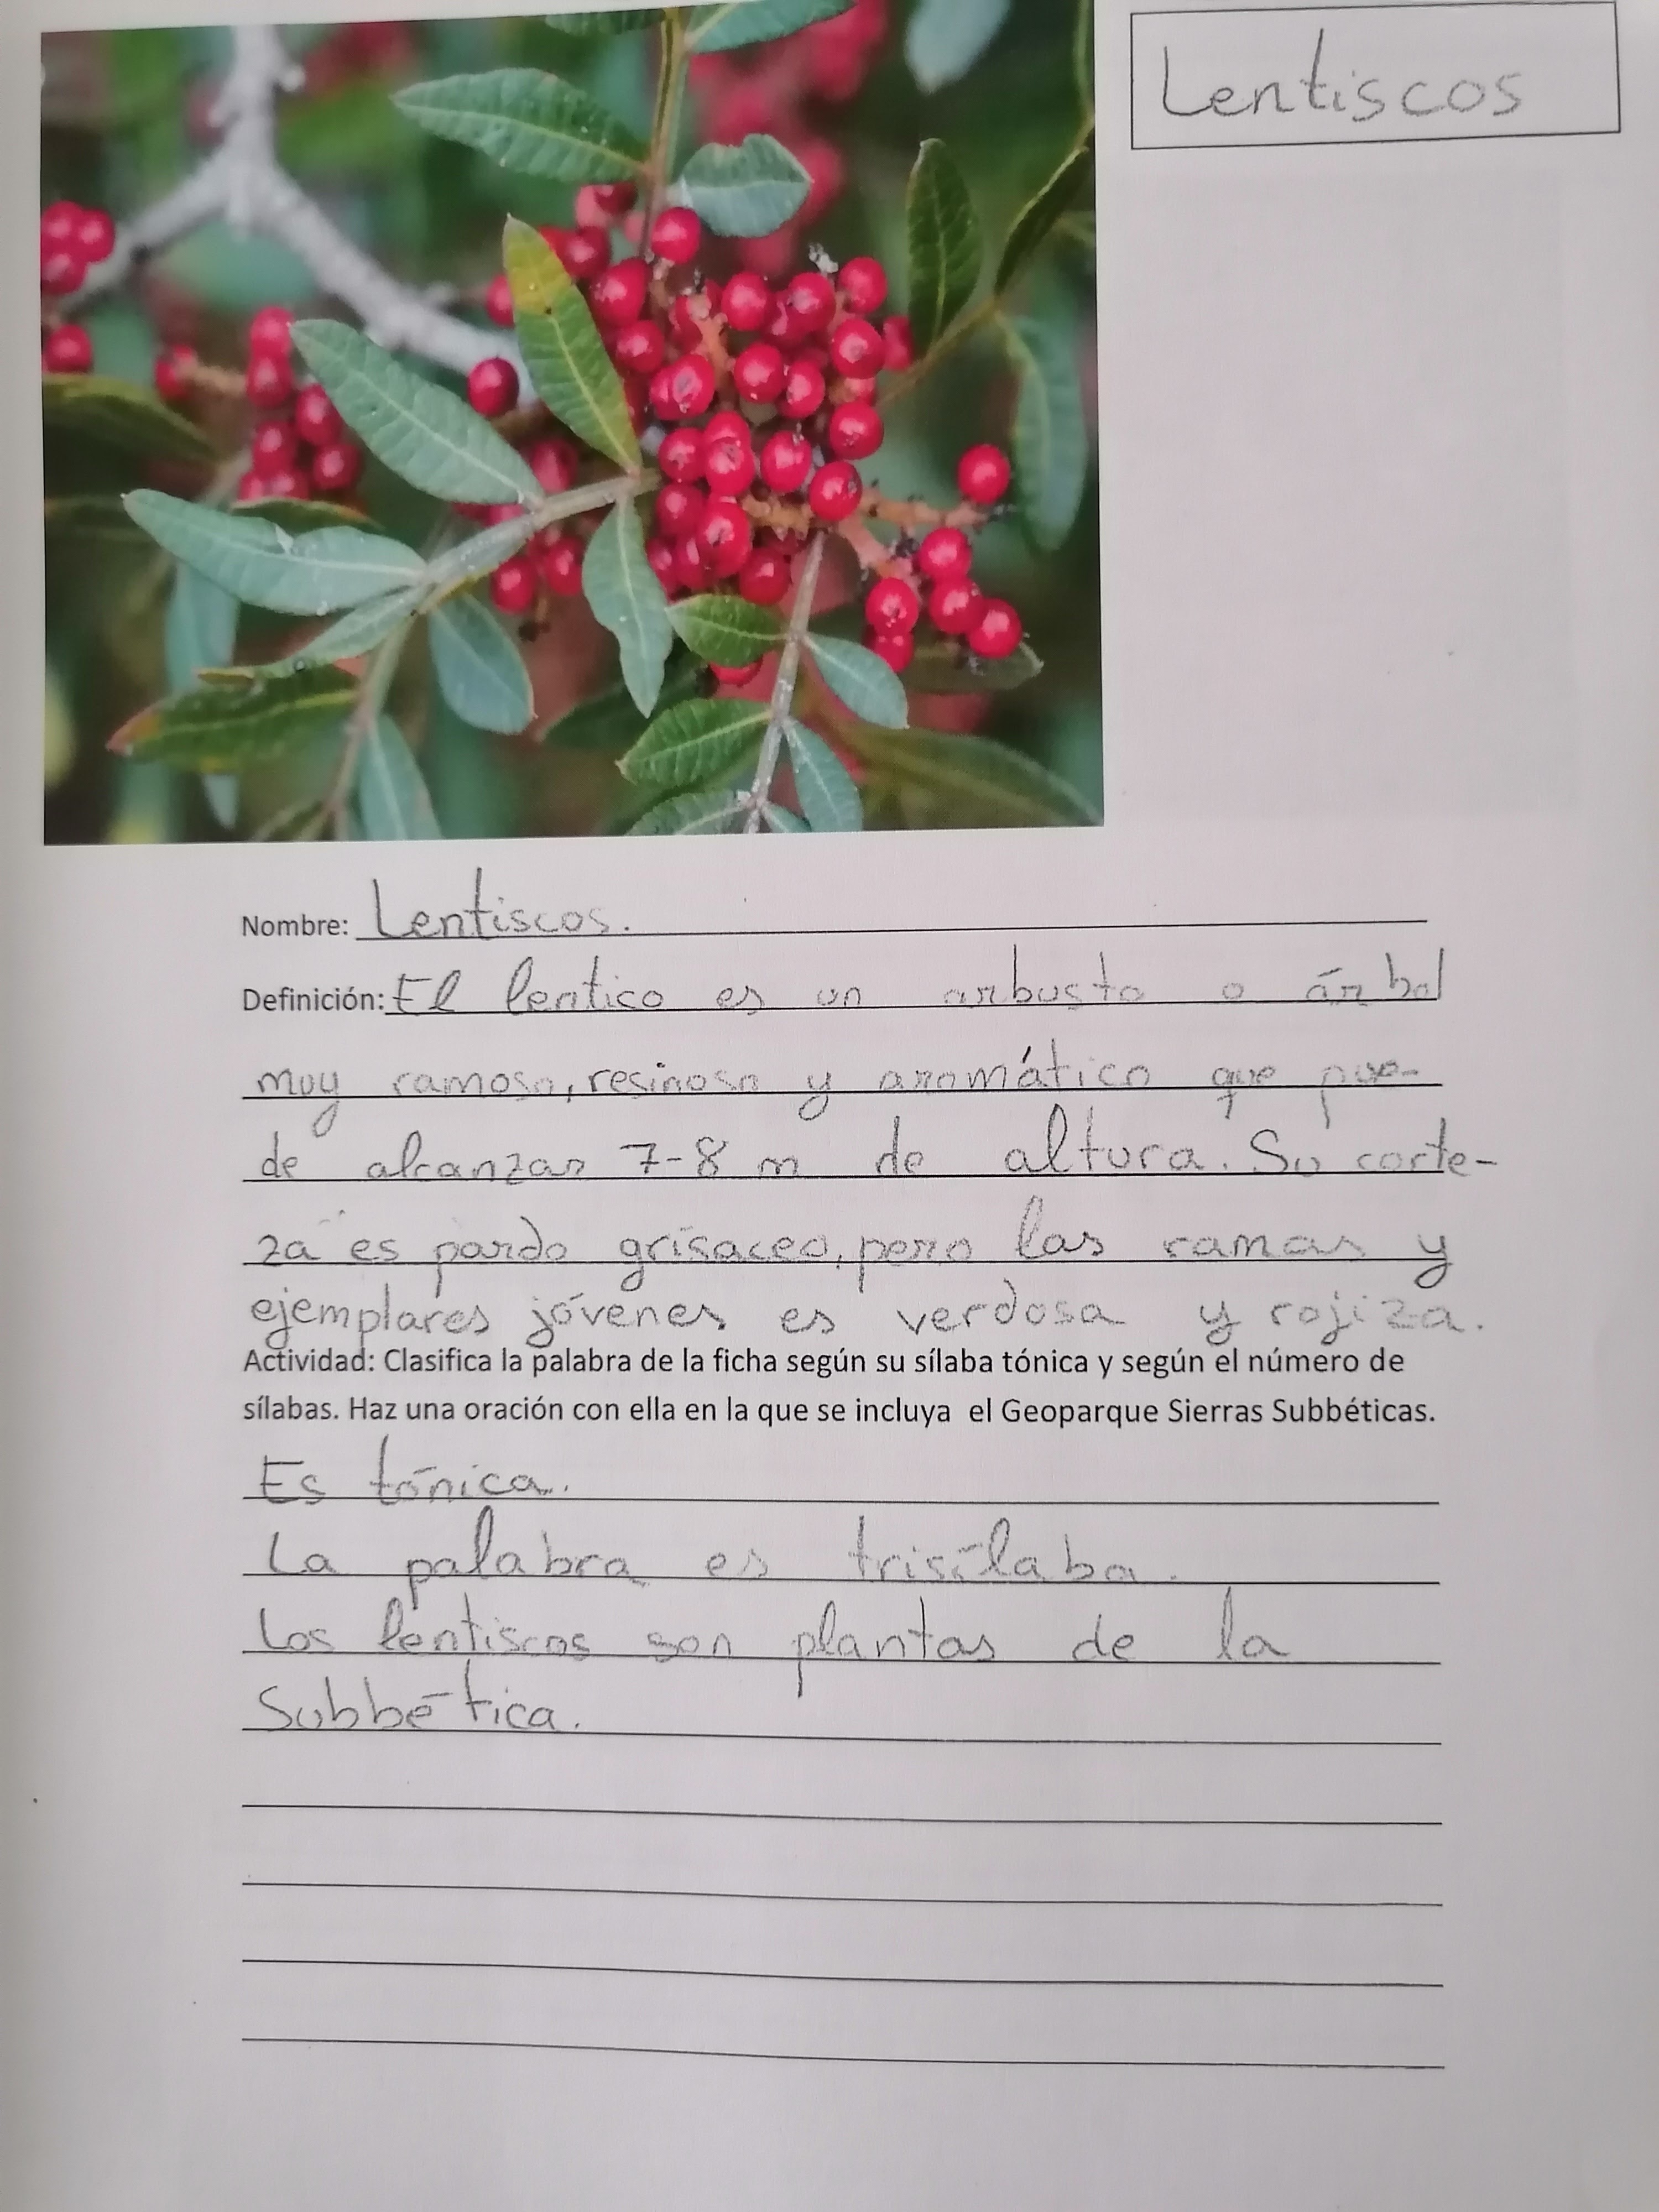 Lentiscos
Nombre: Lentiscos.
Definición: El lentico es un arbusto o árbol
muy ramoso, resinoso y aromático que pue-
de alcanzar 7-8 m de altura. Su corte-
za es pardo grisaceo, pero las ramas y
ejemplares jóvenes es verdosa y rojiza.
Actividad: Clasifica la palabra de la ficha según su sílaba tónica y según el número de
sílabas. Haz una oración con ella en la que se incluya el Geoparque Sierras Subbéticas.
Es tónica.
La palabra es trisílaba.
Los lentiscos son plantas de la
Subbética.